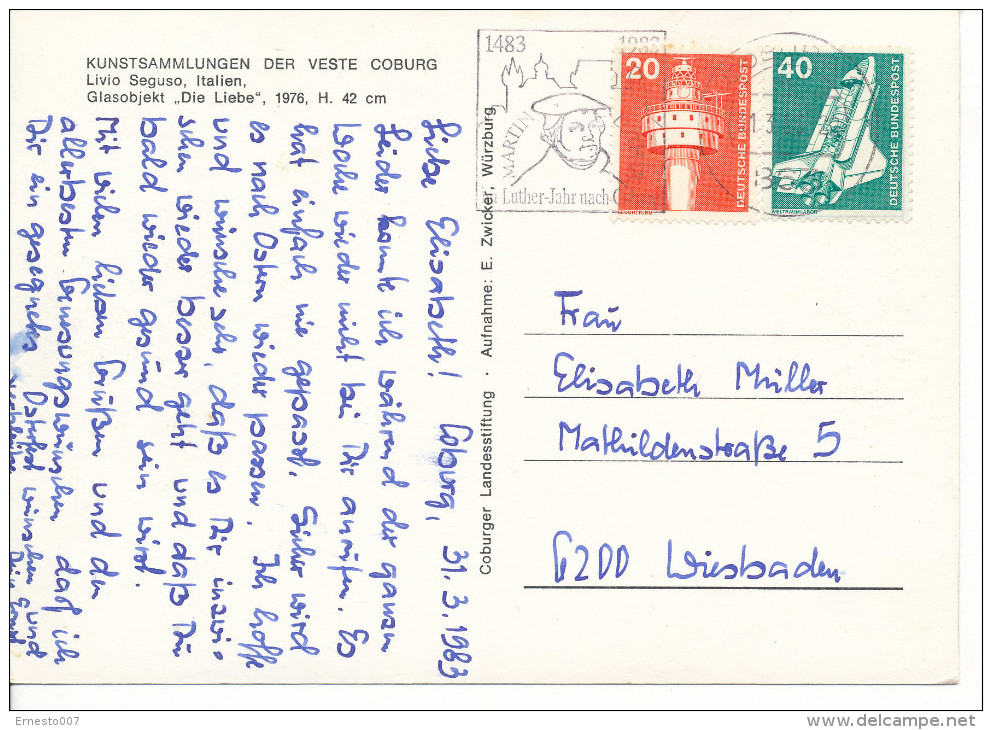 KUNSTSAMMLUNGEN DER VESTE COBURG
Livio Seguso, Italien,
Glasobjekt „Die Liebe“, 1976, H. 42 cm
Coburg, 31.3.1983
Liebe Elisabeth!
Leider konnte ich während der ganzen
Woche wieder nicht bei Dir anrufen. Es
hat einfach nie gepasst. Sicher wird
es nach Ostern wieder passen. Ich hoffe
und wünsche sehr, daß es Dir inzwi-
schen wieder besser geht und daß Du
bald wieder gesund sein wirst.
Mit vielen lieben Grüßen und den
allerbesten Genesungswünschen darf ich
Dir ein gesegnetes Osterfest wünschen und
Coburger Landesstiftung · Aufnahme: E. Zwicker, Würzburg
1483 1983
MARTIN
Luther-Jahr nach
20
DEUTSCHE BUNDESPOST
LEUCHTTURM
40
DEUTSCHE BUNDESPOST
WELTRAUMLABOR
Frau
Elisabeth Müller
Mathildenstraße 5
6200 Wiesbaden
Ernesto007
delcampe.net